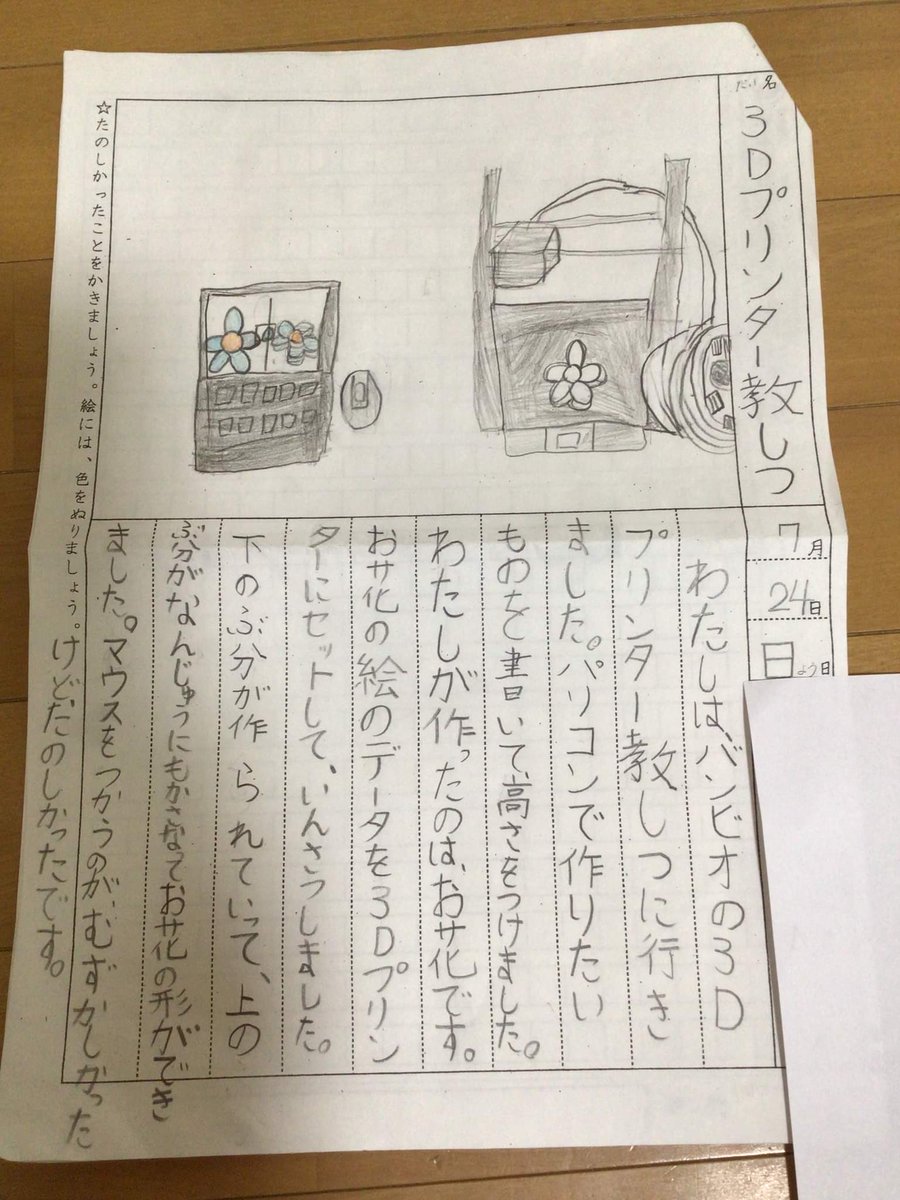 だい名
3Dプリンター教しつ
7月
24日
日よう日
わたしは、バンビオの3D
プリンター教しつに行き
ました。パソコンで作りたい
ものを書いて、高さをつけました。
わたしが作ったのは、お花です。
お花の絵のデータを3Dプリン
ターにセットして、いんさつしました。
下のぶ分が作られていって、上の
ぶ分がなんじゅうにもかさなってお花の形ができ
ました。マウスをつかうのが、むずかしかった
けどたのしかったです。
☆たのしかったことをかきましょう。絵には、色をぬりましょう。